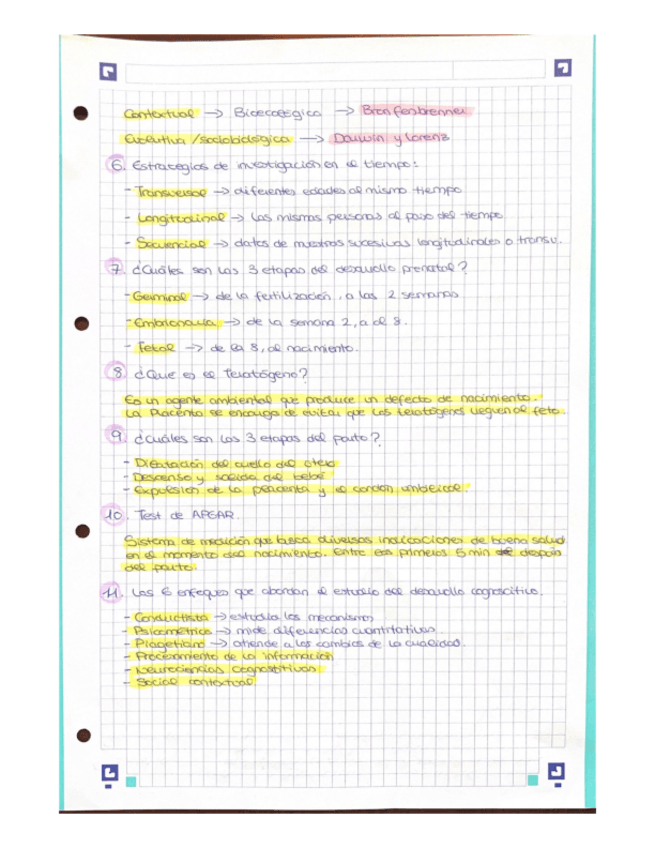 Contextual → Bioecológica → Bronfenbrenner
Evolutiva / sociobiológica → Darwin y Lorenz
6. Estrategias de investigación en el tiempo:
- Transversal → diferentes edades al mismo tiempo
- Longitudinal → Las mismas personas al paso del tiempo
- Secuencial → datos de muestras sucesivas longitudinales o transv.
7. ¿Cuáles son las 3 etapas del desarrollo prenatal?
- Germinal → de la fertilización a las 2 semanas
- Embrionaria → de la semana 2, a el 8.
- Fetal → de la 8, al nacimiento.
8. ¿Que es el Teratógeno?
Es un agente ambiental que produce un defecto de nacimiento.
La Placenta se encarga de evitar que los teratógenos lleguen al feto.
9. ¿Cuáles son las 3 etapas del parto?
- Dilatación del cuello del útero
- Descenso y salida del bebé
- Expulsión de la placenta y el cordón umbilical.
10. Test de APGAR.
Sistema de medición que busca diversas indicaciones de buena salud
en el momento del nacimiento. Entre los primeros 5 min después
del parto.
11. Los 6 enfoques que abordan el estudio del desarrollo cognoscitivo.
- Conductista → estudia los mecanismos
- Psicométrico → mide diferencias cuantitativas
- Piagetiano → atiende a los cambios de la cualidad.
- Procesamiento de la información
- Neurociencias Cognostitivas
- Social contextual